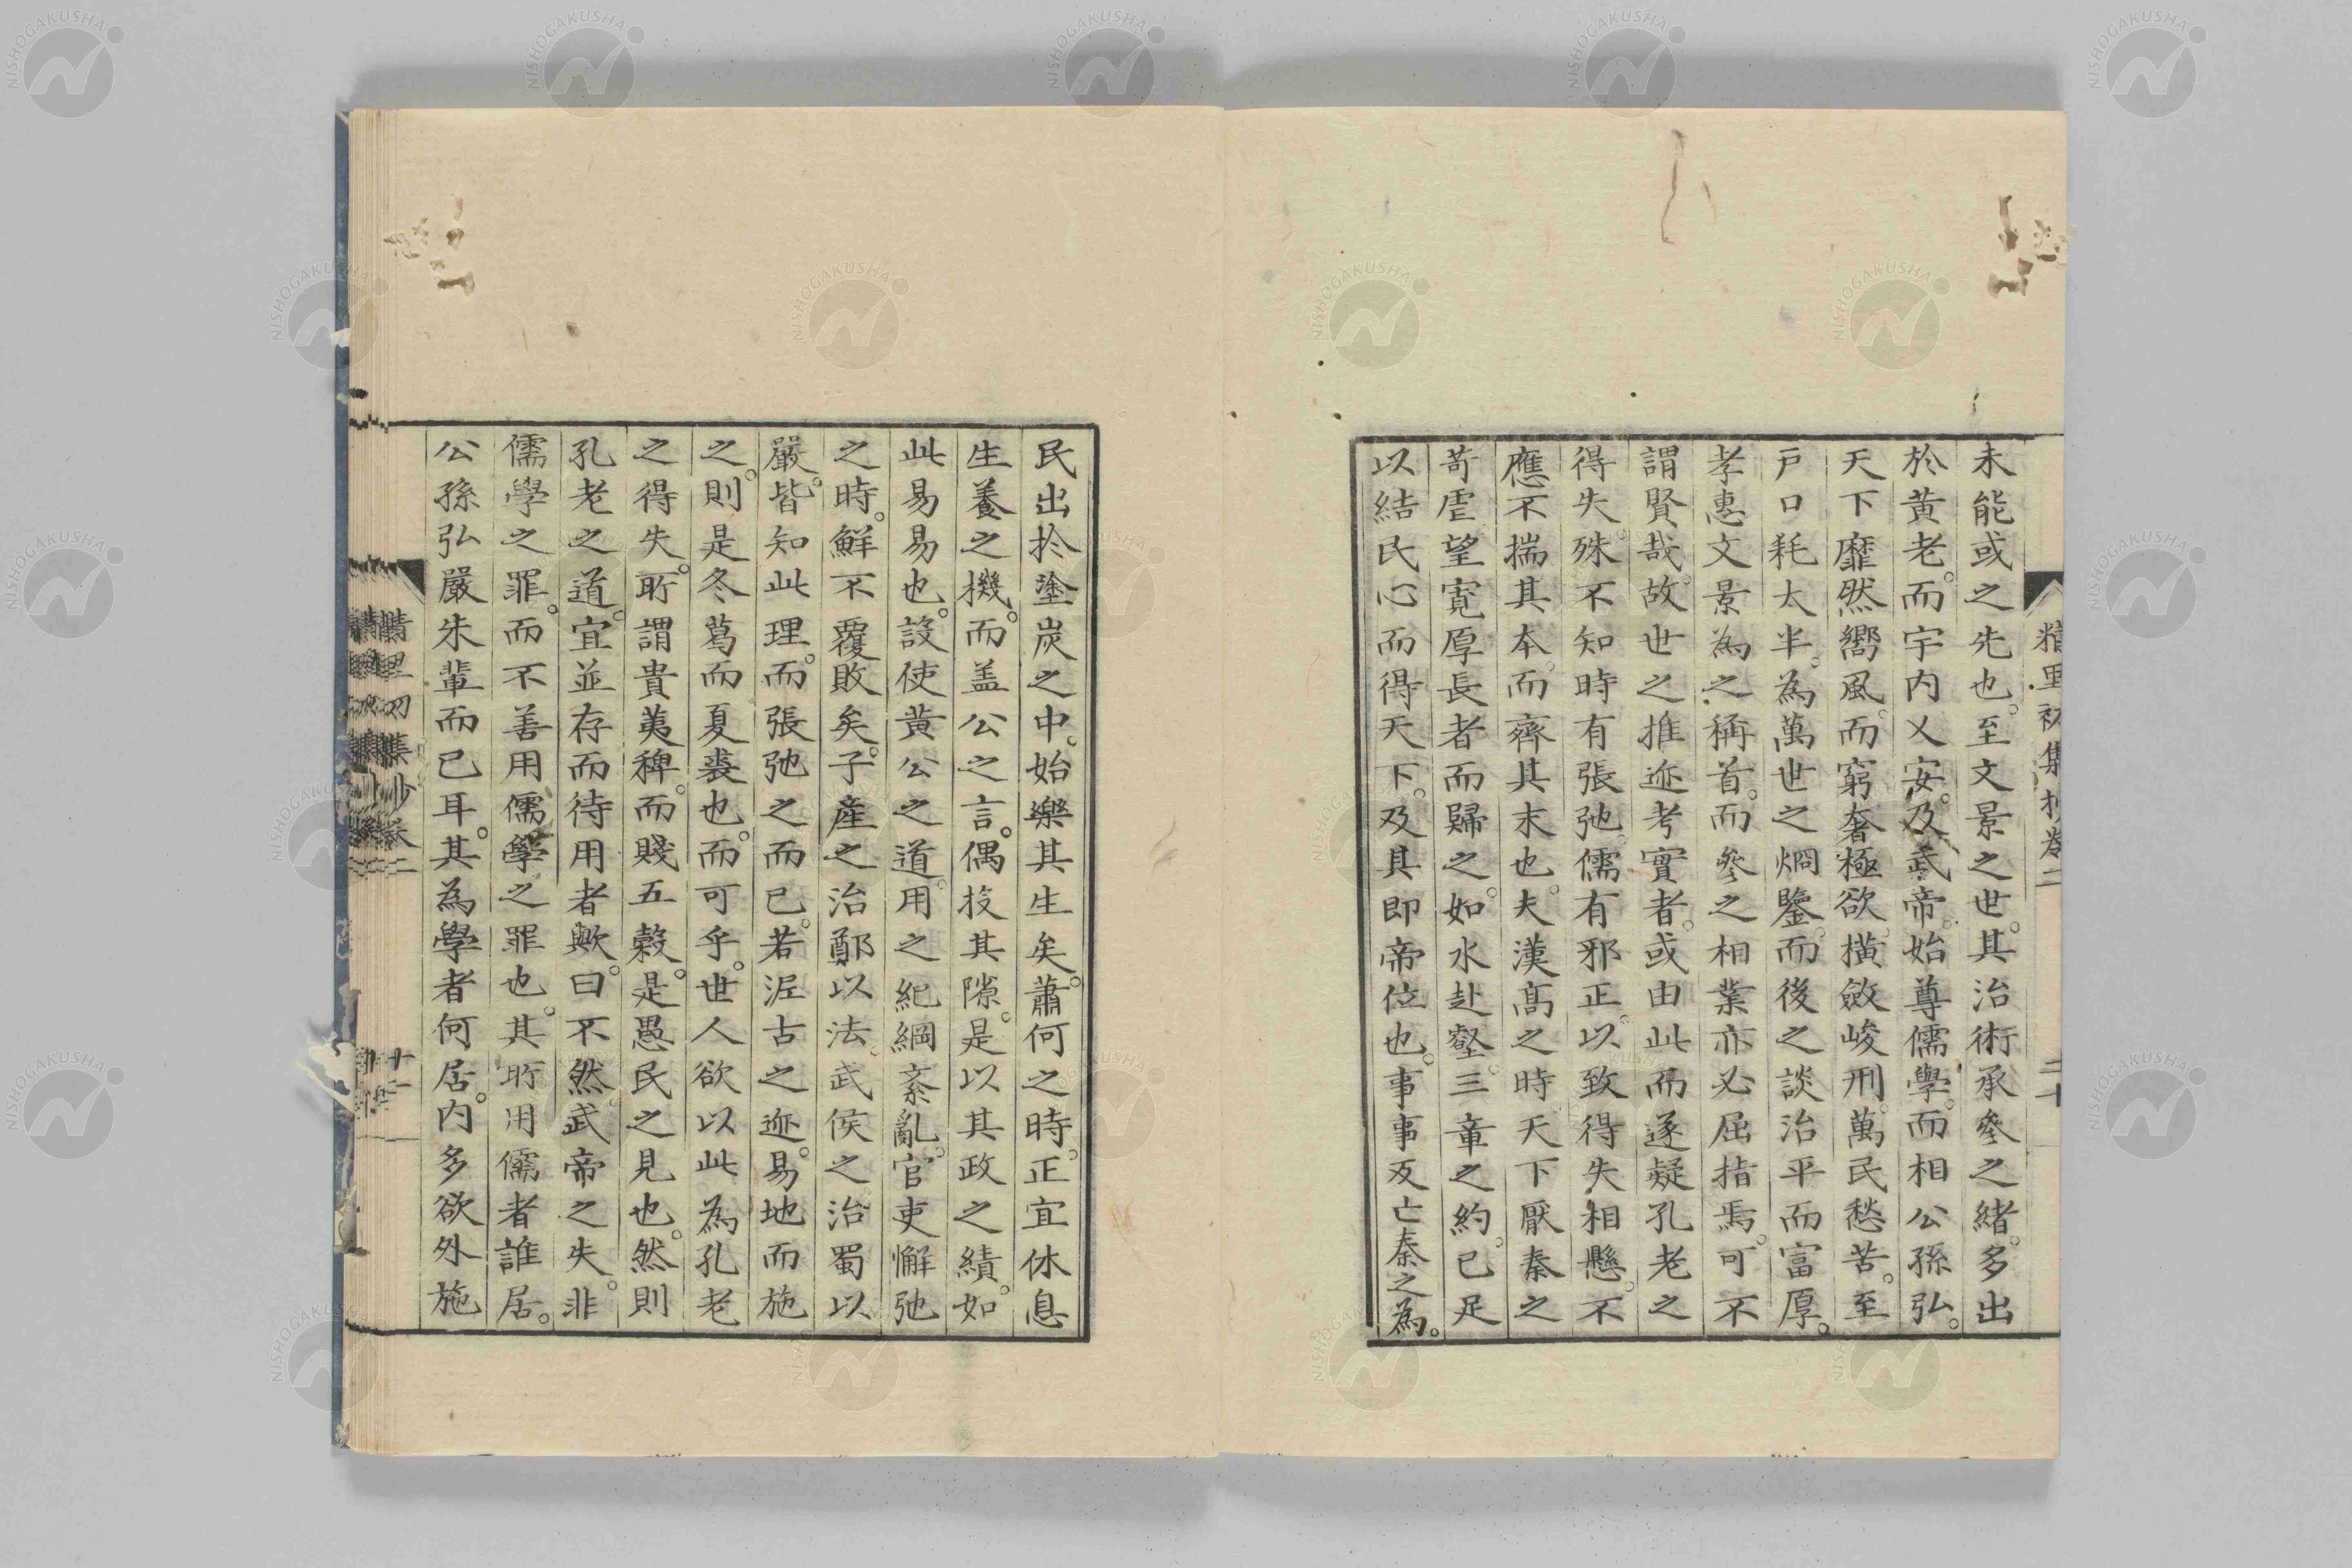 未能或之先也。至文景之世。其治術承參之緒。多出
於黄老。而宇内乂安。及武帝。始尊儒學。而相公孫弘。
天下靡然嚮風。而窮奢極欲。橫斂峻刑。萬民愁苦。至
戸口耗太半。為萬世之烱鑒。而後之談治平而富厚。
孝惠文景為之稱首。而參之相業亦必屈指焉。可不
謂賢哉。故世之推迹考實者。或由此而遂疑孔老之
得失。殊不知時有張弛。儒有邪正。以致得失相懸。不
應不揣其本。而齊其末也。夫漢高之時。天下厭秦之
苛虐。望寛厚長者而歸之。如水赴壑。三章之約。已足
以結民心而得天下。及其即帝位也。事事反亡秦之為。
民出於塗炭之中。始樂其生矣。蕭何之時。正宜休息
生養之機。而盖公之言。偶投其隙。是以其政之績。如
此易易也。設使黄公之道。用之紀綱紊亂。官吏懈弛
之時。鮮不覆敗矣。子產之治鄭以法。武侯之治蜀以
嚴。皆知此理。而張弛之而已。若泥古之迹。易地而施
之。則是冬葛而夏裘也。而可乎。世人欲以此為孔老
之得失。所謂貴荑稗。而賤五穀。是愚民之見也。然則
孔老之道。宜並存而待用者歟。曰。不然。武帝之失。非
儒學之罪。而不善用儒學之罪也。其所用儒者誰居。
公孫弘嚴朱輩而已耳。其為學者何居。内多欲外施
精里初集抄卷二
二十
NISHOGAKUSHA